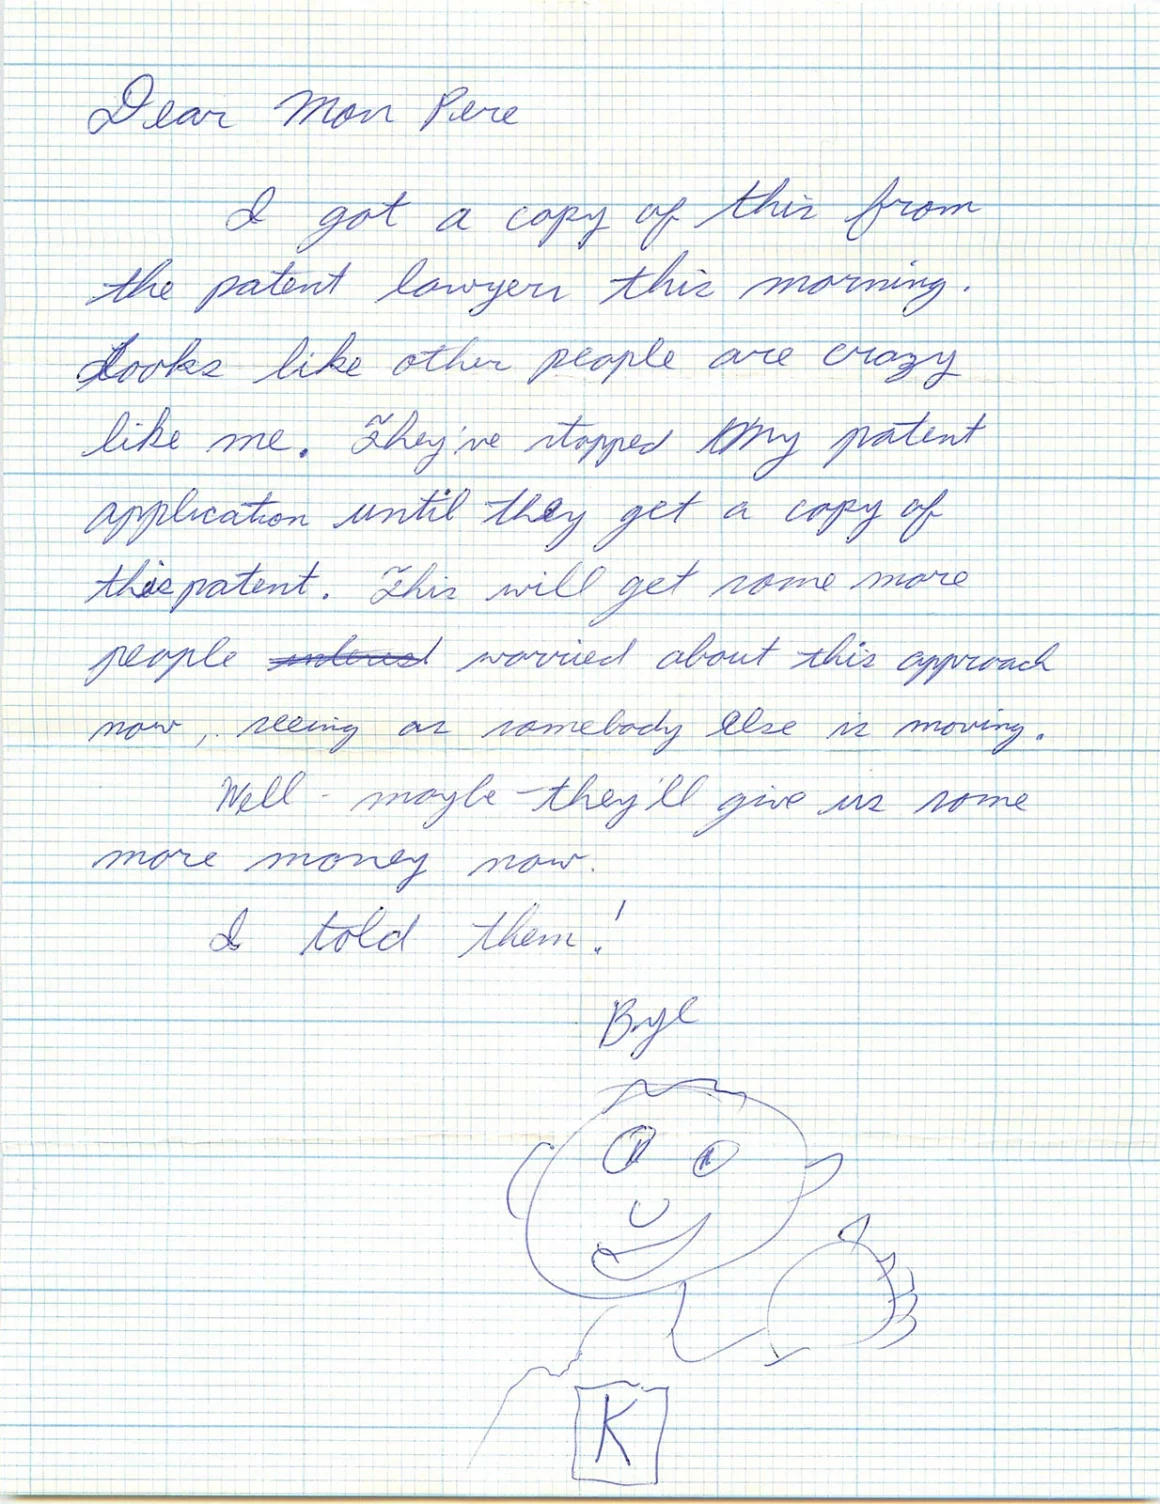 Dear Mon Pere
I got a copy of this from
the patent lawyers this morning.
Looks like other people are crazy
like me. They've stopped My patent
application until they get a copy of
this patent. This will get some more
people interest worried about this approach
now, seeing as somebody else is moving.
Well - maybe they'll give us some
more money now.
I told them!
K